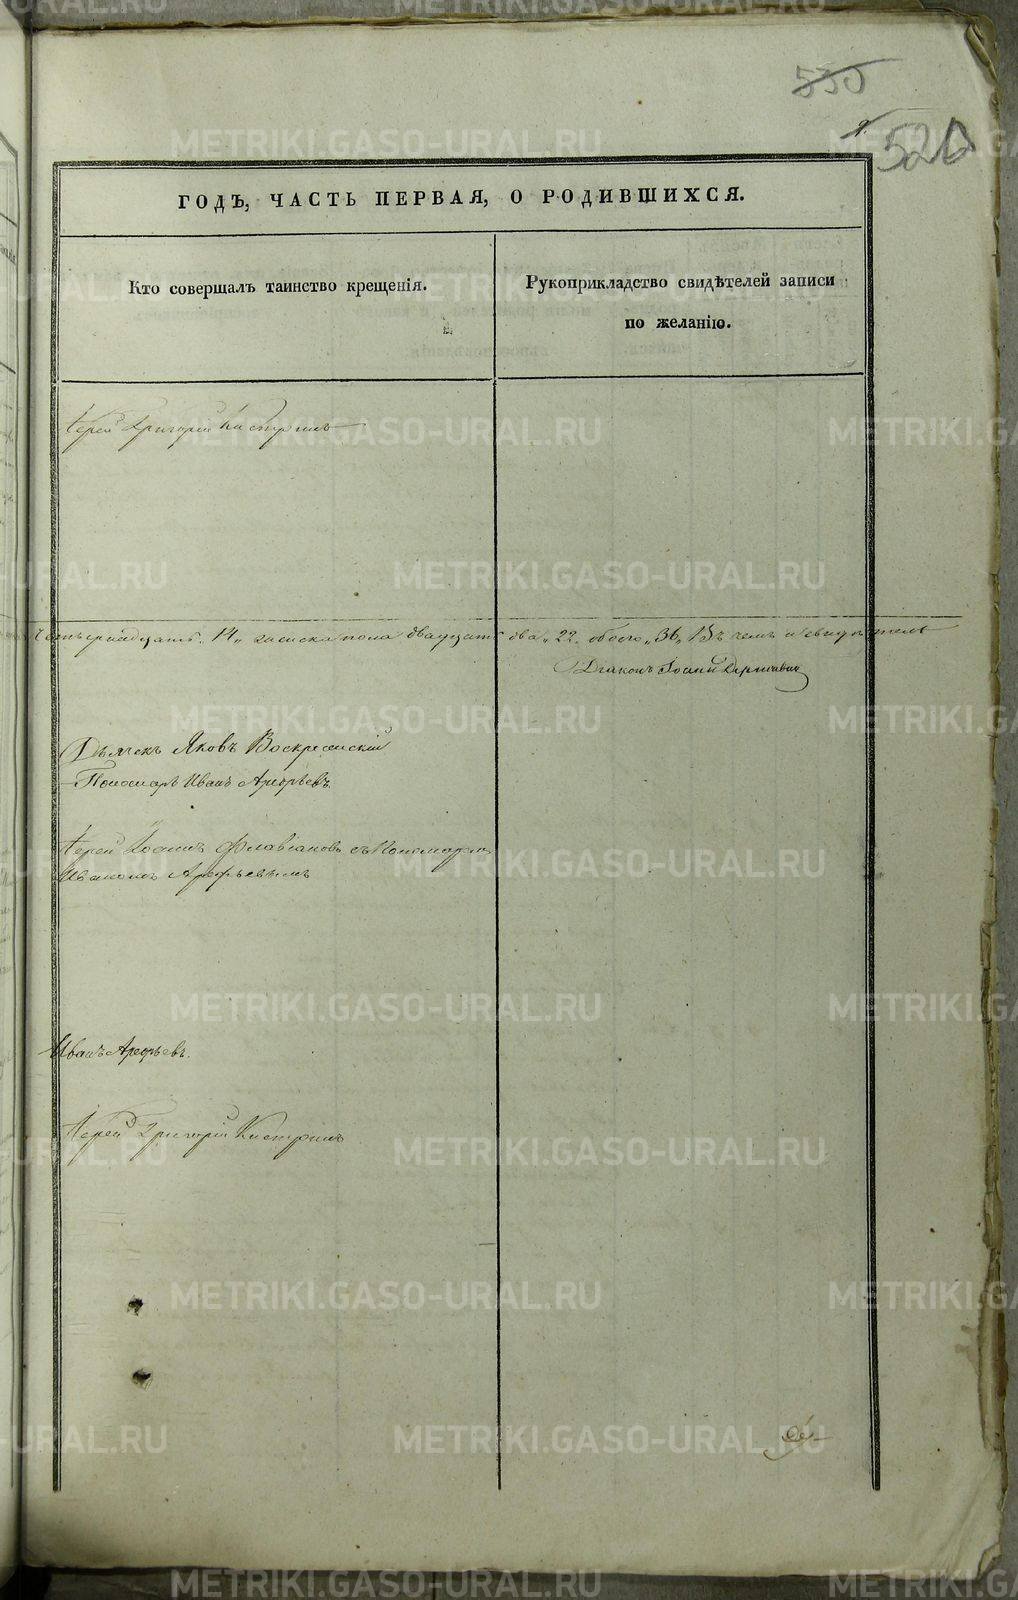 530
9.
520
ГОДЪ, ЧАСТЬ ПЕРВАЯ, О РОДИВШИХСЯ.
Кто совершалъ таинство крещенія.
Рукоприкладство свидѣтелей записи
по желанію.
Іерей Григорій Кастринъ
четырнадцать „14„ женска пола двадцать два „22„ обоего „36„ Въ чемъ и свидѣтель
Діаконъ Іоаннъ
Дьячекъ Яковъ Воскресенскій
Пономарь Иванъ Арефьевъ
Іерей Іоаннъ Флавіановъ съ Пономаремъ
Иваномъ Арефьевымъ
Иванъ Арефьевъ.
Іерей Григорій Кастринъ
METRIKI.GASO-URAL.RU